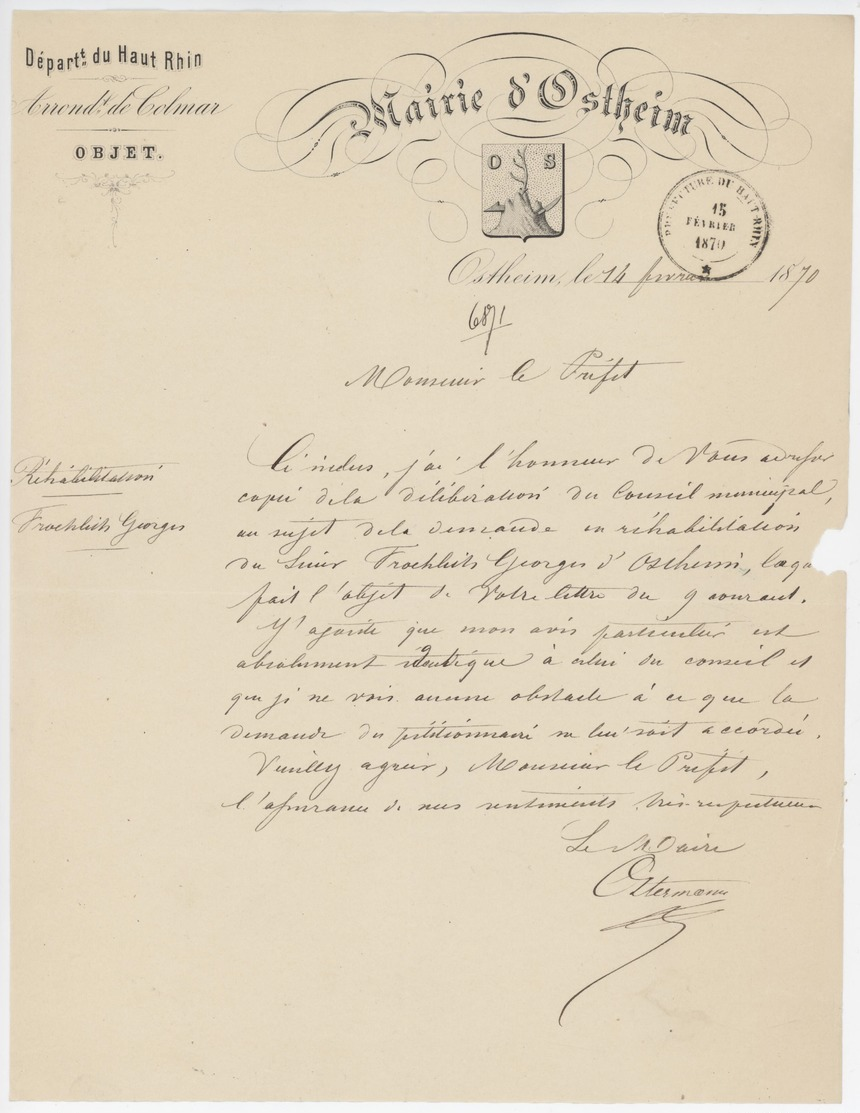 Départ.t du Haut Rhin
Arrond.t de Colmar
OBJET.
Mairie d'Ostheim
O S
PREFECTURE DU HAUT-RHIN
15
FÉVRIER
1870
Ostheim, le 14 fevrier 1870
6871
Monsieur le Préfet
Réhabilitation
Froehlits Georges
Ci inclus, j'ai l'honneur de Vous adresser
copie dela délibération du Conseil municipal,
au sujet dela demande en réhabilitation
du Sieur Froehlits Georges d'Ostheim, laqu
fait l'objet de Votre lettre du 9 courant.
J'ajoute que mon avis particulier est
absolument identique à celui du conseil et
que je ne vois aucune obstacle à ce que la
demande du pétitionnaire ne lui soit accordée.
Veuillez agréer, Monsieur le Préfet,
l'assurance de mes sentiments très-respectueux
Le Maire
Ostermann